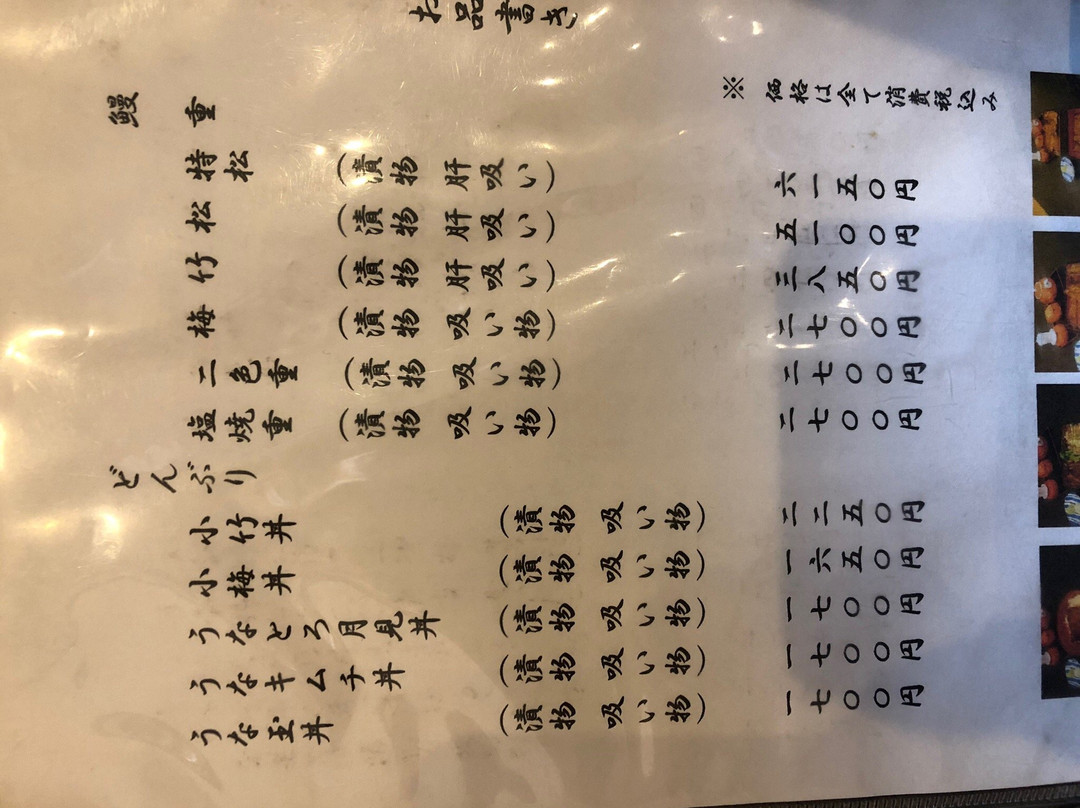 お品書き
※ 価格は全て消費税込み
鰻重
特松 (漬物 肝吸い) 六一五〇円
松 (漬物 肝吸い) 五一〇〇円
竹 (漬物 肝吸い) 三八五〇円
梅 (漬物 吸い物) 二七〇〇円
二色重 (漬物 吸い物) 二七〇〇円
塩焼重 (漬物 吸い物) 二七〇〇円
どんぶり
小竹丼 (漬物 吸い物) 二二五〇円
小梅丼 (漬物 吸い物) 一六五〇円
うなとろ月見丼 (漬物 吸い物) 一七〇〇円
うなキムチ丼 (漬物 吸い物) 一七〇〇円
うな玉丼 (漬物 吸い物) 一七〇〇円